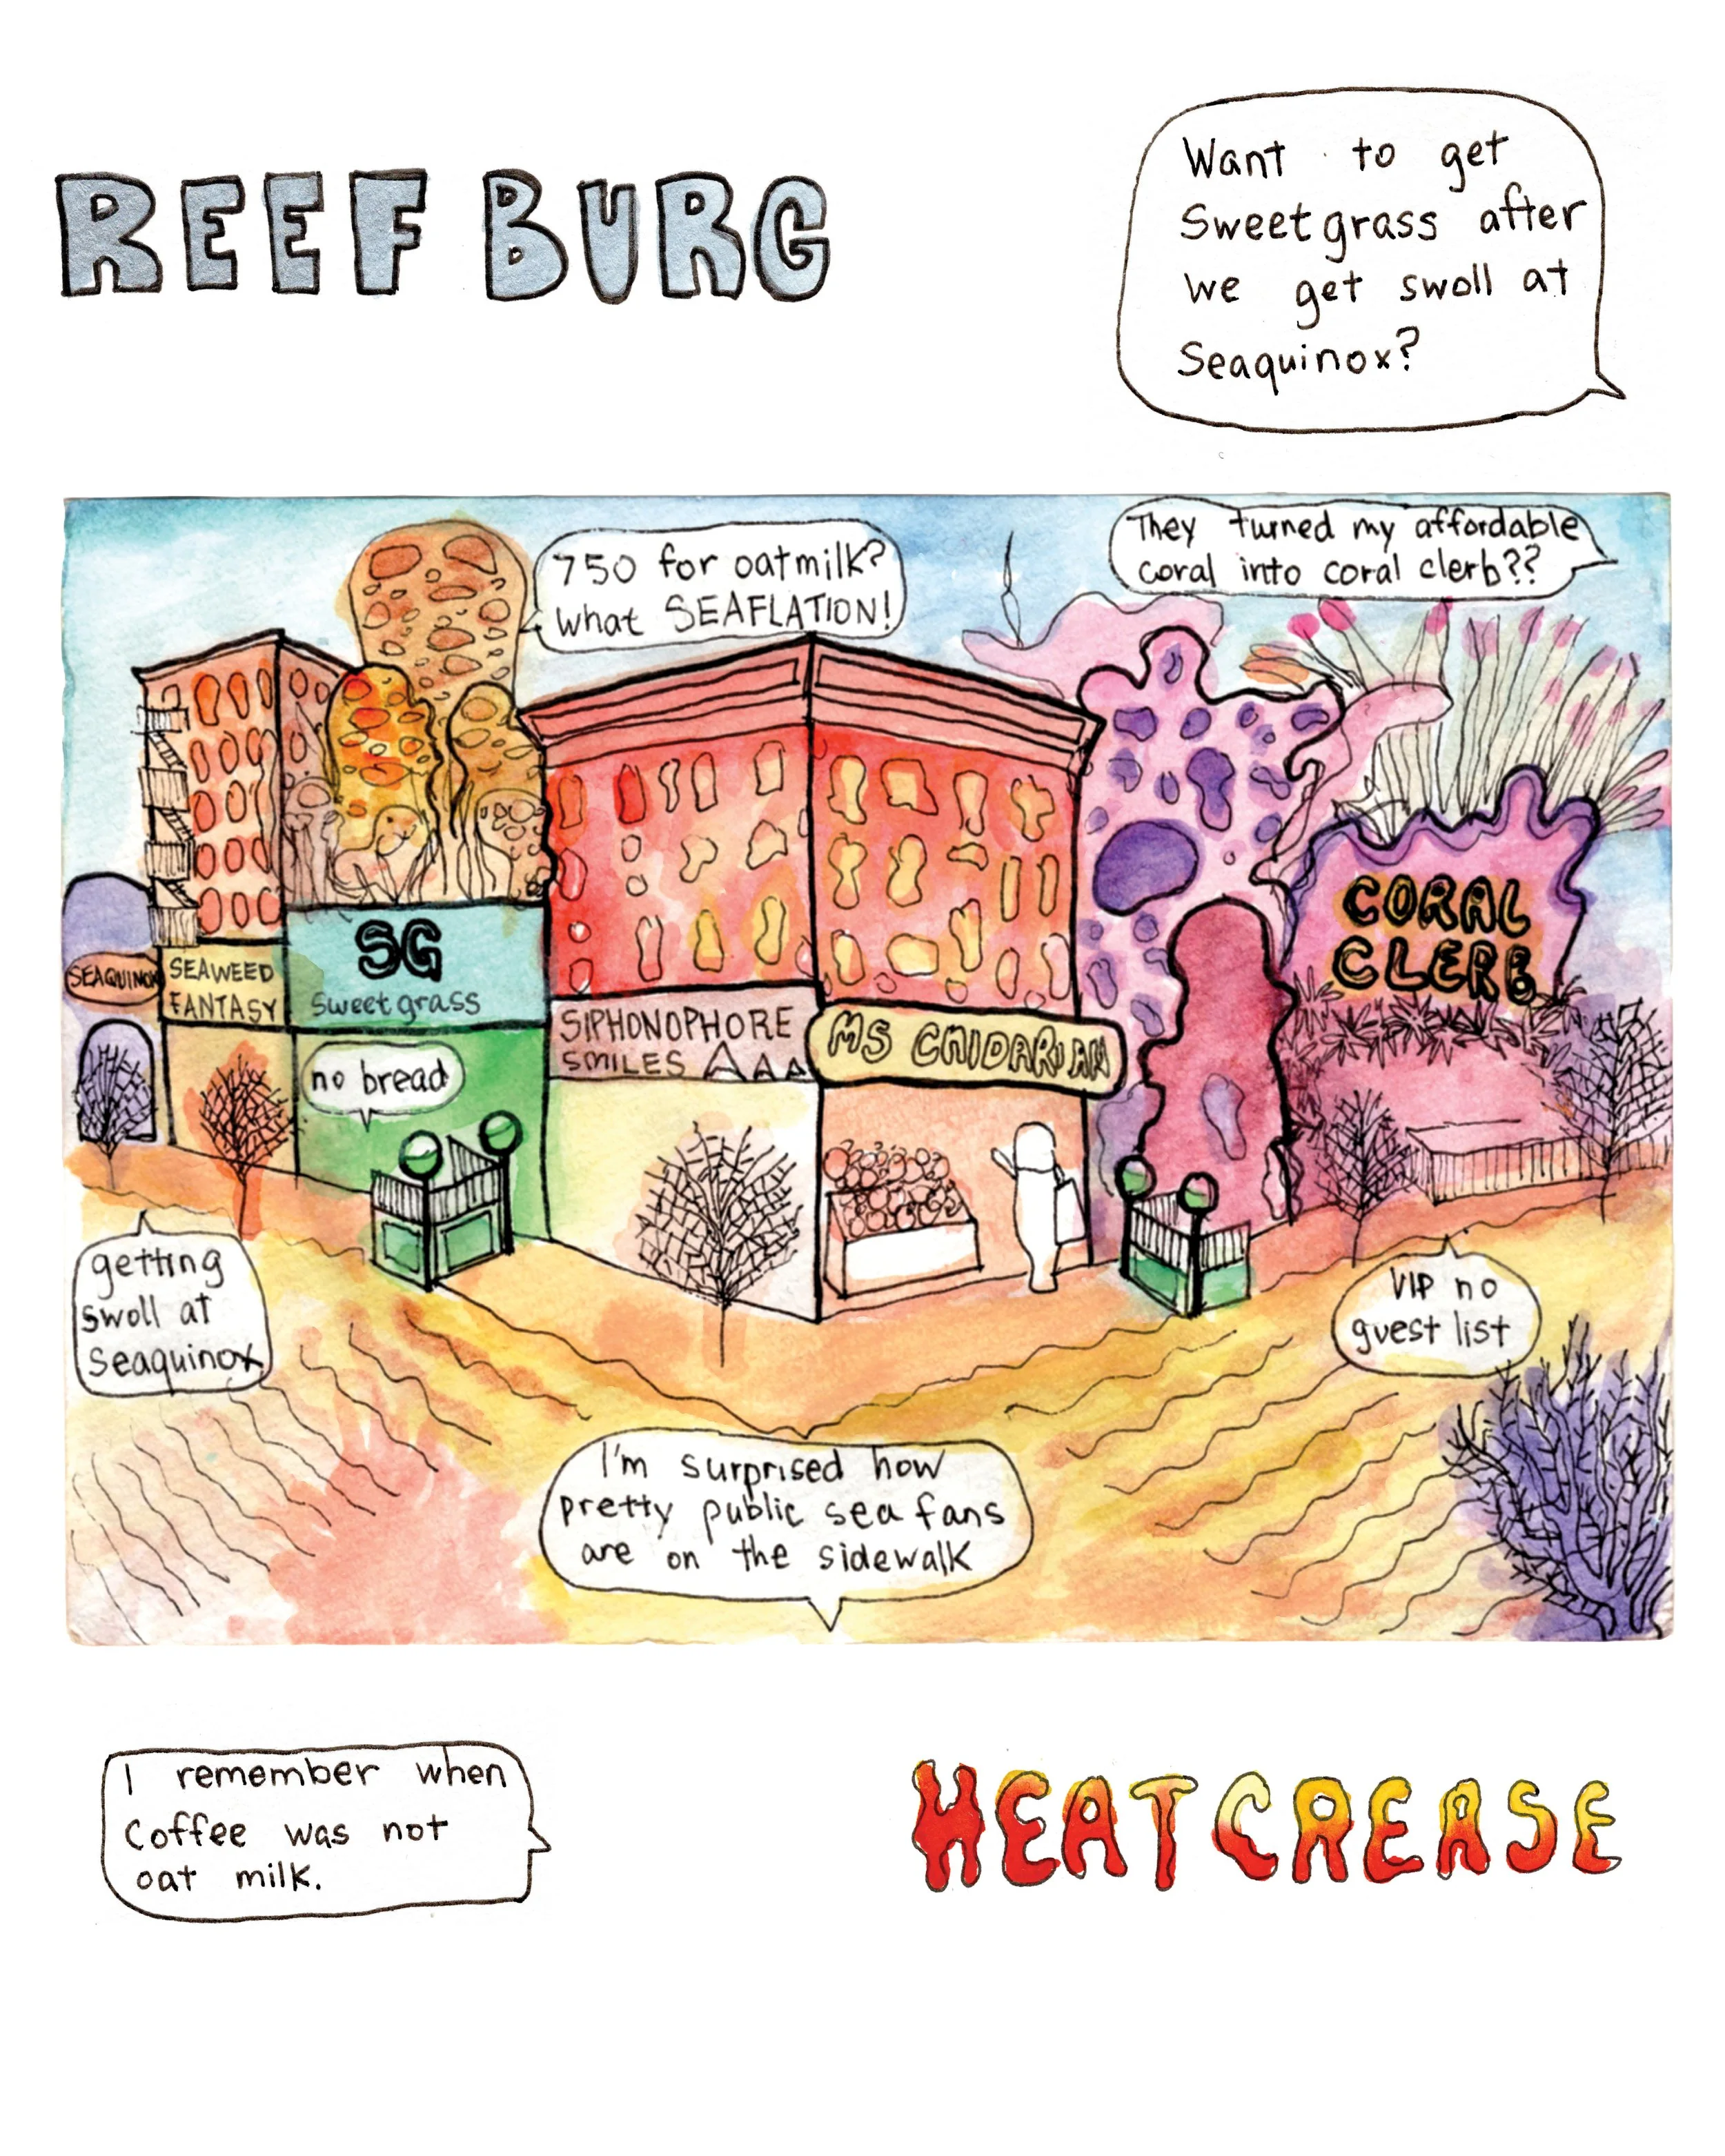 REEF BURG
Want to get
Sweetgrass after
we get swoll at
Seaquinox?
They turned my affordable
coral into coral clerb??
750 for oatmilk?
what SEAFLATION!
CORAL
CLERB
SG
sweetgrass
SEAQUINOX
SEAWEED
FANTASY
SIPHONOPHORE
SMILES
MS CNIDARIAN
no bread
getting
swoll at
seaquinox
VIP no
guest list
I'm surprised how
pretty public sea fans
are on the sidewalk
I remember when
Coffee was not
oat milk.
HEATCREASE